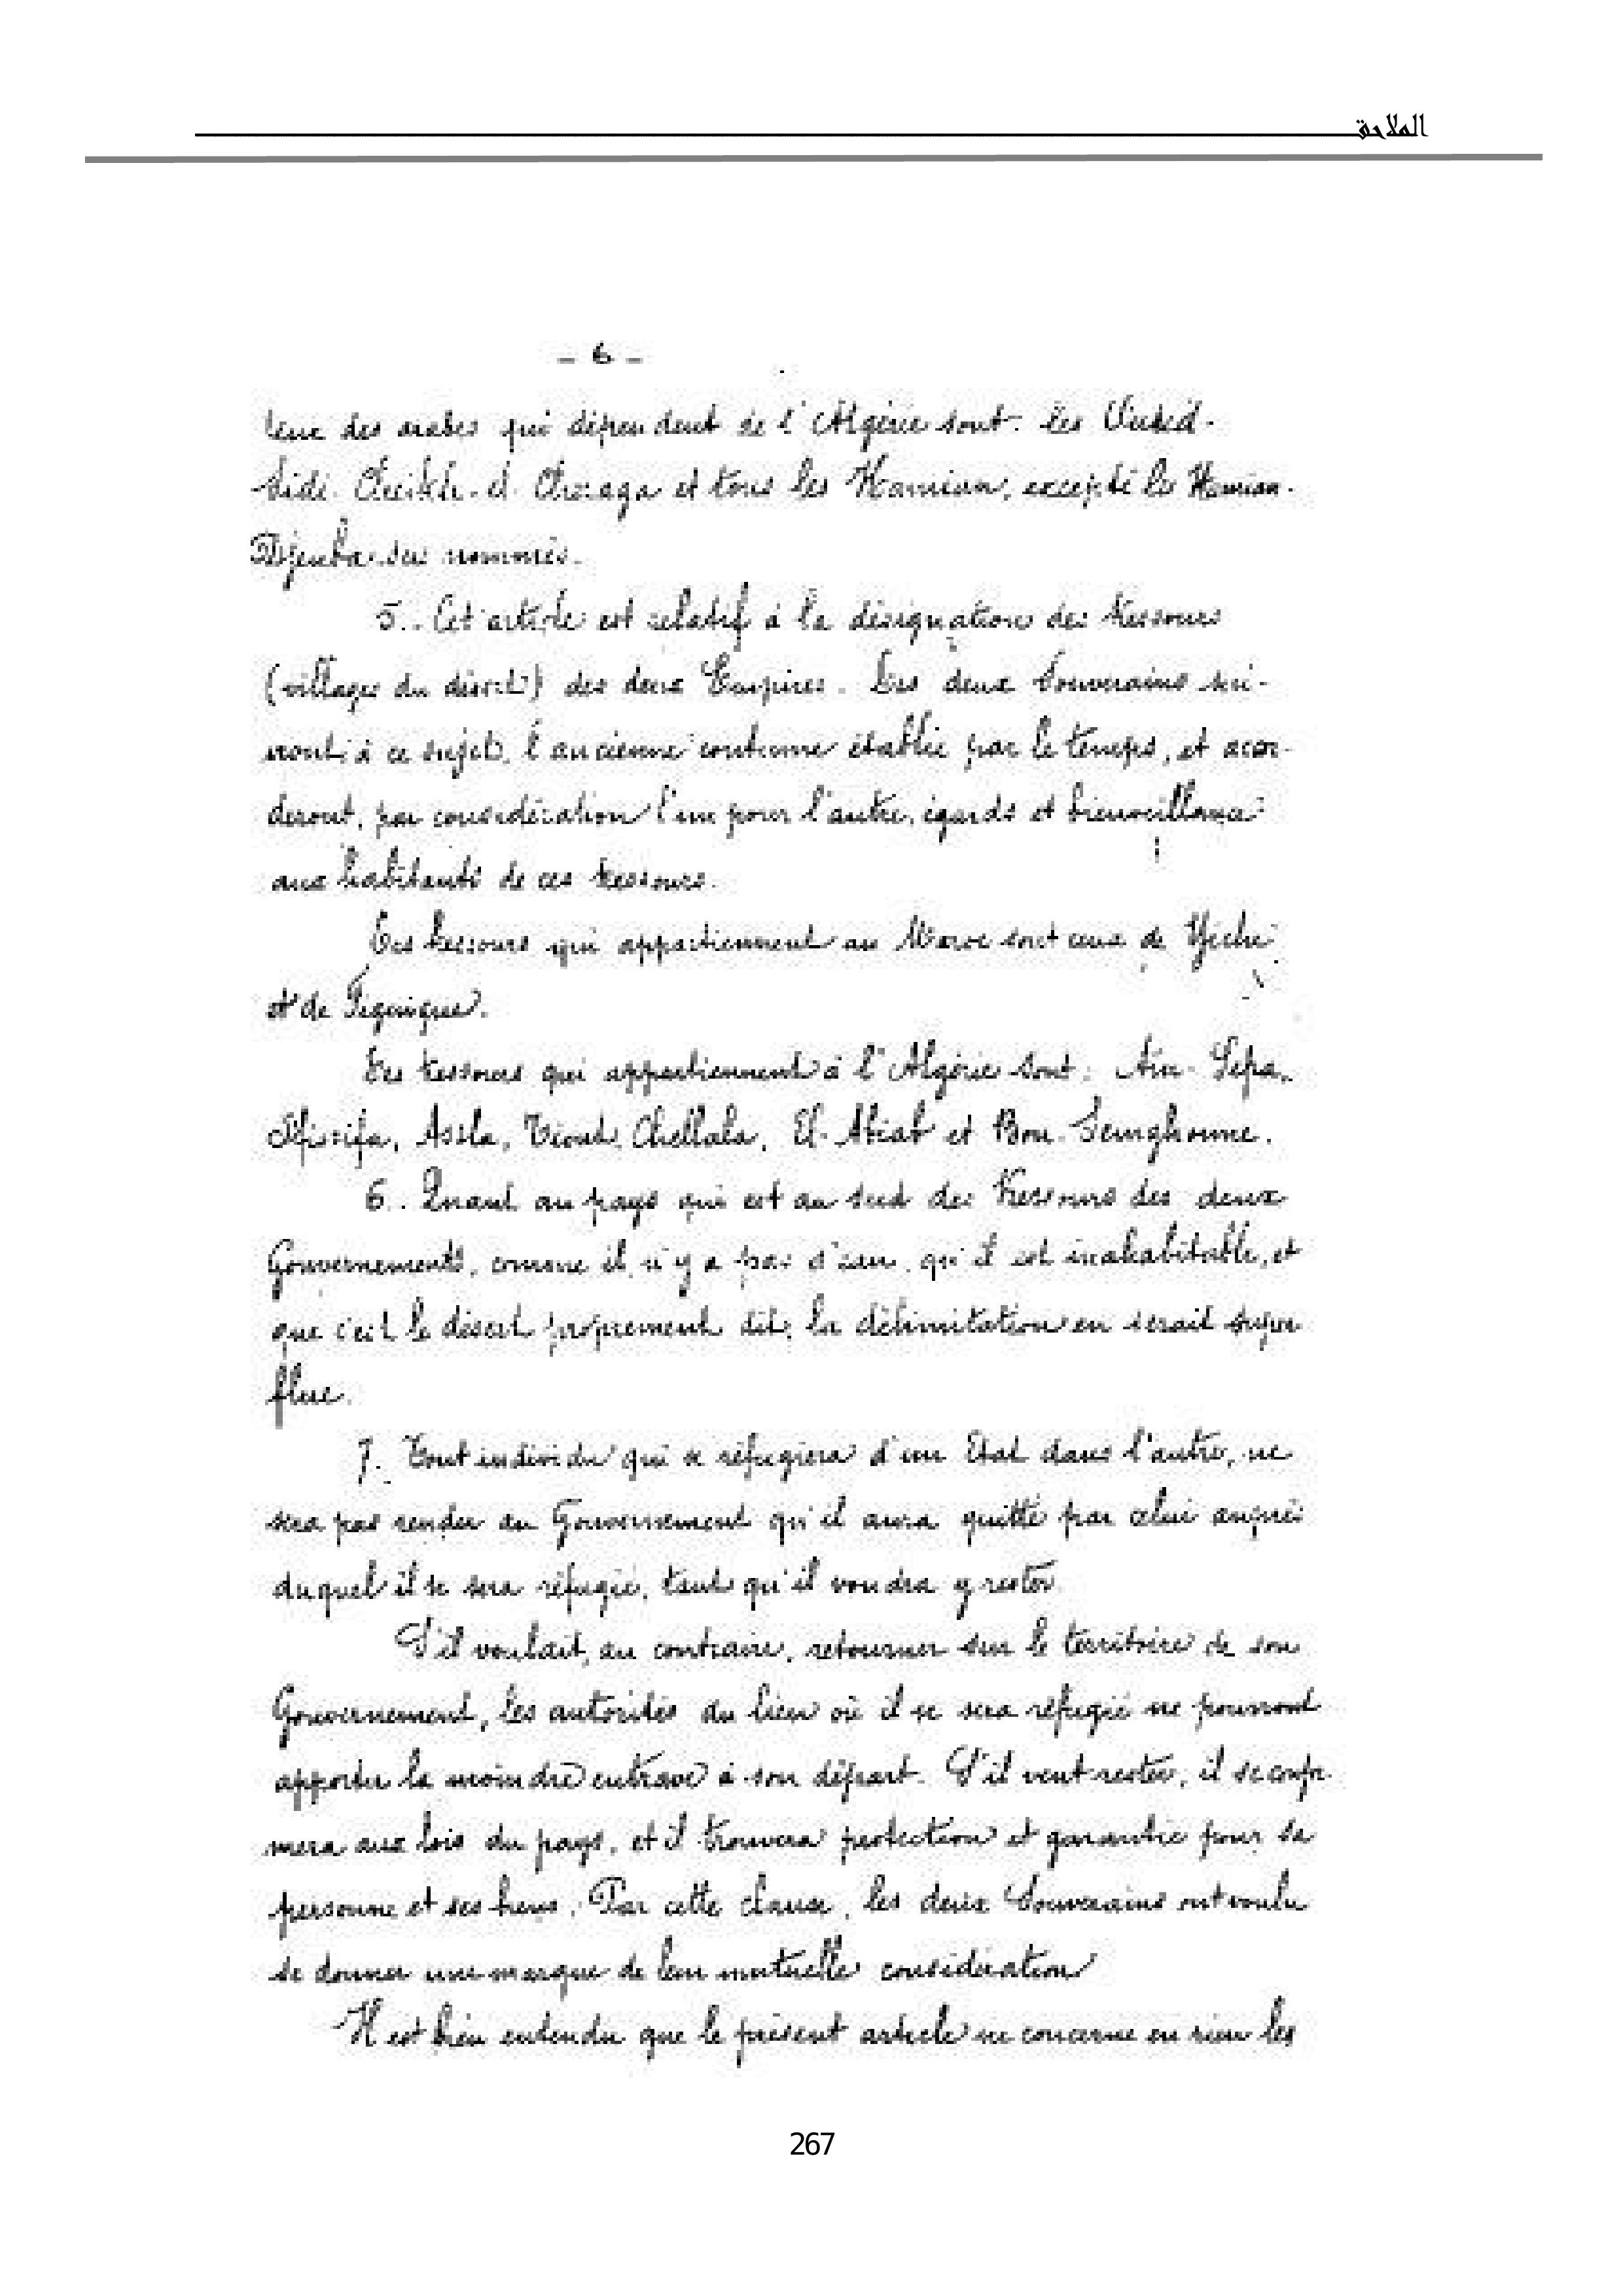 الملاحق
- 6 -
Ceux des arabes qui dépendent de l'Algérie sont: les Ouled-
Sidi-Cheikh-el-Cheraga et tous les Hamian, excepté les Hamian-
Djenba sus nommés.
5.. Cet article est relatif à la désignation des Kessours
(villages du désert) des deux Empires. Les deux Souverains sui-
vront, à ce sujet, l'ancienne coutume établie par le temps, et accor-
deront, par considération l'un pour l'autre, égards et bienveillance
aux habitants de ces Kessours.
Les Kessours qui appartiennent au Maroc sont ceux de Yiche
et de Figuigue.
Les Kessours qui appartiennent à l'Algérie sont: Ain-Sefra,
Sfissifa, Assla, Tiout, Chellala, El-Abiad et Bou-Semghoune.
6.. Quant au pays qui est au sud des Kessours des deux
Gouvernements, comme il n'y a pas d'eau, qu'il est inahabitable, et
que c'est le désert proprement dit, la délimitation en serait super
flue.
7.. Tout individu qui se réfugiera d'un Etat dans l'autre, ne
sera pas rendu au Gouvernement qu'il aura quitté par celui auprès
duquel il se sera réfugié, tant qu'il voudra y rester.
S'il voulait, au contraire, retourner sur le territoire de son
Gouvernement, les autorités du lieu où il se sera réfugié ne pourront
apporter la moindre entrave à son départ. S'il veut rester, il se confor
mera aux lois du pays, et il trouvera protection et garantie pour sa
personne et ses biens. Par cette clause, les deux Souverains ont voulu
se donner une marque de leur mutuelle considération
Il est bien entendu que le présent article ne concerne en rien les
267